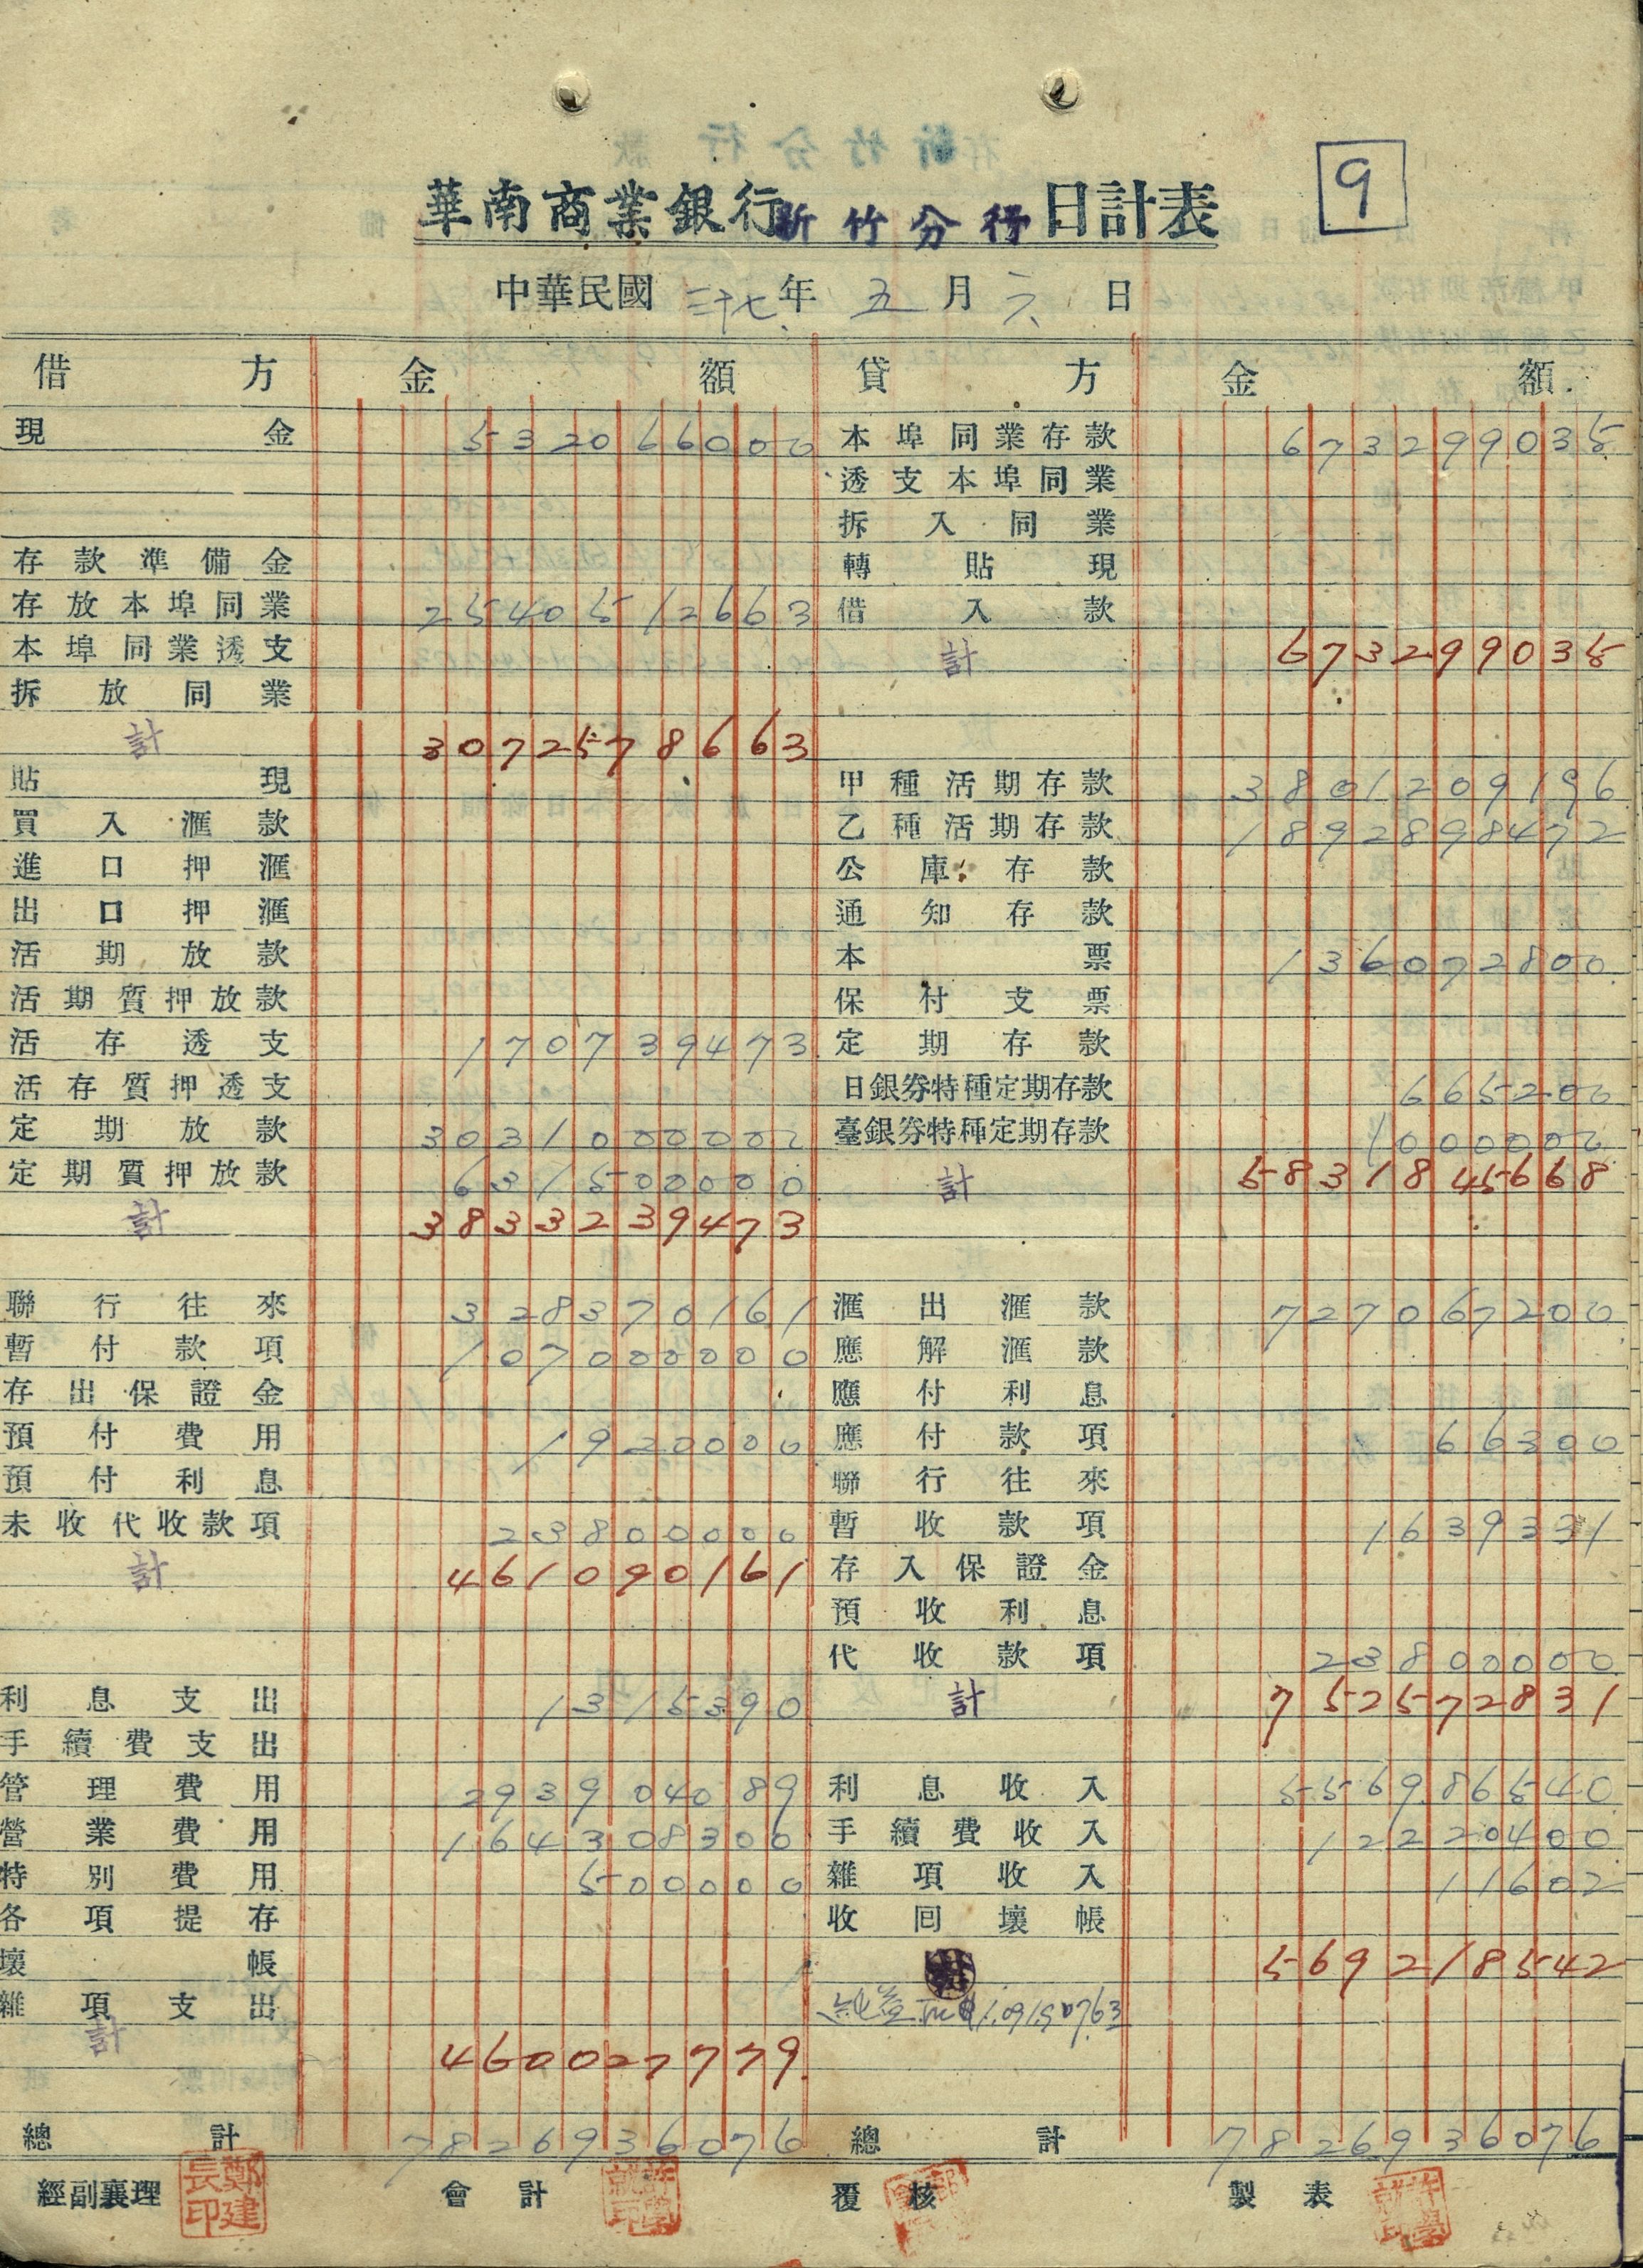 9
華南商業銀行新竹分行日計表
中華民國三十七年五月六日
借方 金額 貸方 金額
現金 532066000 本埠同業存款 673299035
透支本埠同業
拆入同業
存款準備金 轉貼現
存放本埠同業 2540512663 借入款
本埠同業透支 計 673299035
拆放同業
計 3072578663
貼現 甲種活期存款 3801209196
買入滙款 乙種活期存款 1892898472
進口押滙 公庫存款
出口押滙 通知存款
活期放款 本票 136072800
活期質押放款 保付支票
活存透支 170739473 定期存款
活存質押透支 日銀券特種定期存款 665200
定期放款 3031000000 臺銀券特種定期存款 1000000
定期質押放款 631500000 計 5831845668
計 3833239473
聯行往來 328370161 滙出滙款 727067200
暫付款項 107000000 應解滙款
存出保證金 應付利息
預付費用 1920000 應付款項 66300
預付利息 聯行往來
未收代收款項 23800000 暫收款項 1639331
計 461090161 存入保證金
預收利息
代收款項 23800000
利息支出 1315390 計 752572831
手續費支出
管理費用 293904089 利息收入 556986540
營業費用 164308300 手續費收入 12220400
特別費用 500000 雜項收入 11602
各項提存 收回壞帳
壞帳 計 569218542
雜項支出 純益 1,091,907.63
計 460027779
總計 7826936076 總計 7826936076
經副襄理 鄭建長印 會計 覆核 製表